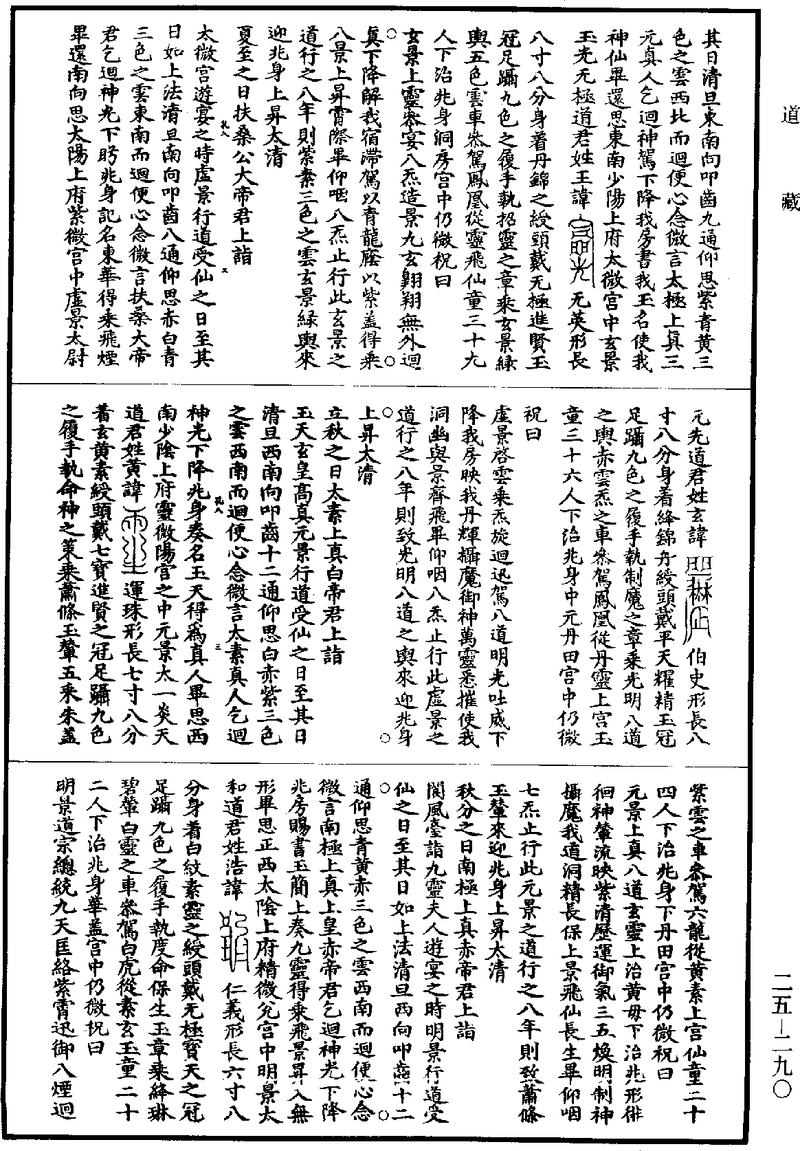 道藏
其日清旦東南向叩齒九通仰思紫青黃三
色之雲西北而迴便心念微言太極上真三
元真人乞迴神駕下降我房書我玉名使我
神仙畢還思東南少陽上府太微宮中玄景
玉光无極道君姓王諱 无英形長
八寸八分身着丹錦之綬頭戴无極進賢玉
冠足躡九色之履手執招靈之章乘玄景綠
輿五色雲車叅駕鳳凰從靈飛仙童三十九
人下治兆身洞房宮中仍微祝曰
玄景上靈叅宴八炁造景九玄翱翔無外迴
真下降解我宿滯駕以青龍廕以紫盖得乘
八景上昇霄際畢仰咽八炁止行此玄景之
道行之八年則紫素三色之雲玄景綠輿來
迎兆身上昇太清
夏至之日扶桑公大帝君上詣
太微宮遊宴之時虛景行道受仙之日至其
日如上法清旦南向叩齒八通仰思赤白青
三色之雲東南而迴便心念微言扶桑大帝
君乞迴神光下眄兆身記名東華得乘飛煙
畢還南向思太陽上府紫微宮中虛景太尉
元光道君姓玄諱 伯史形長八
寸八分身着絳錦丹綬頭戴平天耀精玉冠
足躡九色之履手執制魔之章乘光明八道
之輿赤雲炁之車叅駕鳳凰從丹靈上宮玉
童三十六人下治兆身中元丹田宮中仍微
祝曰
虛景啓雲乘炁旋迴迅駕八道明光吐威下
降我房映我丹輝攝魔御神萬靈悉摧使我
洞幽與景齊飛畢仰咽八炁止行此虛景之
道行之八年則致光明八道之輿來迎兆身
上昇太清
立秋之日太素上真白帝君上詣
玉天玄皇高真元景行道受仙之日至其日
清旦西南向叩齒十二通仰思白赤紫三色
之雲西南而迴便心念微言太素真人乞迴
神光下降兆身奏名玉天得為真人畢思西
南少陰上府靈微陽宮之中元景太一炎天
道君姓黃諱 運珠形長七寸八分
着玄黃素綬頭戴七寶進賢之冠足躡九色
之履手執命神之策乘蕭條玉輦五釆朱盖
紫雲之車叅駕六龍從黃素上宮仙童二十
四人下治兆身下丹田宮中仍微祝曰
元景上真八道玄靈上治黃毋下治兆形徘
徊神輦流映紫清歷運御氣三五煥明制神
攝魔我道洞精長保上景飛仙長生畢仰咽
七炁止行此元景之道行之八年則致蕭條
玉輦來迎兆身上昇太清
秋分之日南極上真赤帝君上詣
閬風臺詣九靈夫人遊宴之時明景行道受
仙之日至其日如上法清旦西向叩齒十二
通仰思青黃赤三色之雲西南而迴便心念
微言南極上真上皇赤帝君乞迴神光下降
兆房賜書玉簡上奏九靈得乘飛景昇入無
形畢思正西太陰上府精微兌宮中明景太
和道君姓浩諱 仁義形長六寸八
分身着白紋素靈之綬頭戴无極寶天之冠
足躡九色之履手執度命保生玉章乘絳琳
碧輦白靈之車叅駕白虎從素玄玉童二十
二人下治兆身華盖宮中仍微祝曰
明景道宗緫統九天匡絡紫霄迅御八煙迴
二五—二九〇